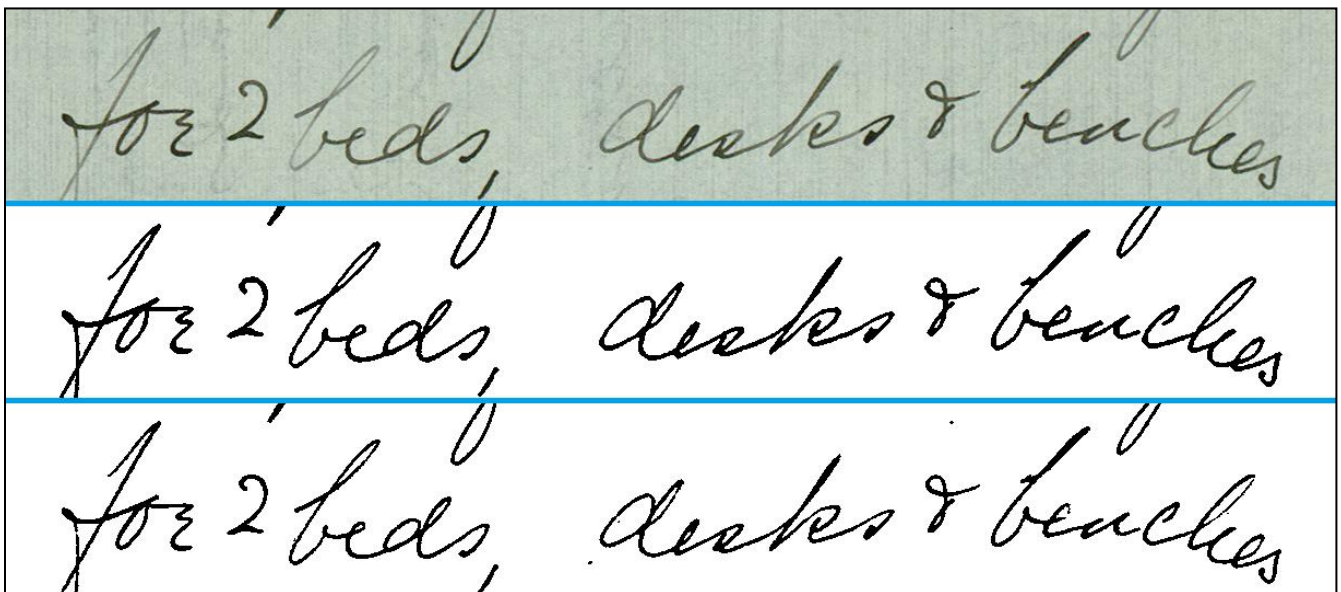 for 2 beds, desks & benches
for 2 beds, desks & benches
for 2 beds, desks & benches